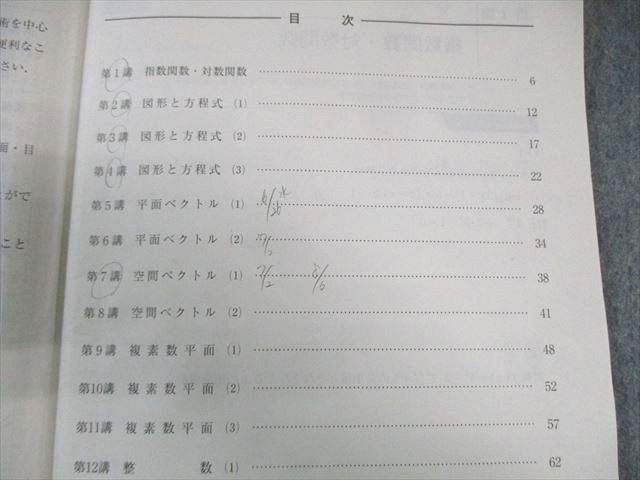 術を中心
便利なこ
さい.
面・目
とがで
こと
目 次
第1講 指数関数・対数関数 6
第2講 図形と方程式 (1) 12
第3講 図形と方程式 (2) 17
第4講 図形と方程式 (3) 22
第5講 平面ベクトル (1) 28
第6講 平面ベクトル (2) 34
第7講 空間ベクトル (1) 38
第8講 空間ベクトル (2) 41
第9講 複素数平面 (1) 48
第10講 複素数平面 (2) 52
第11講 複素数平面 (3) 57
第12講 整数 (1) 62